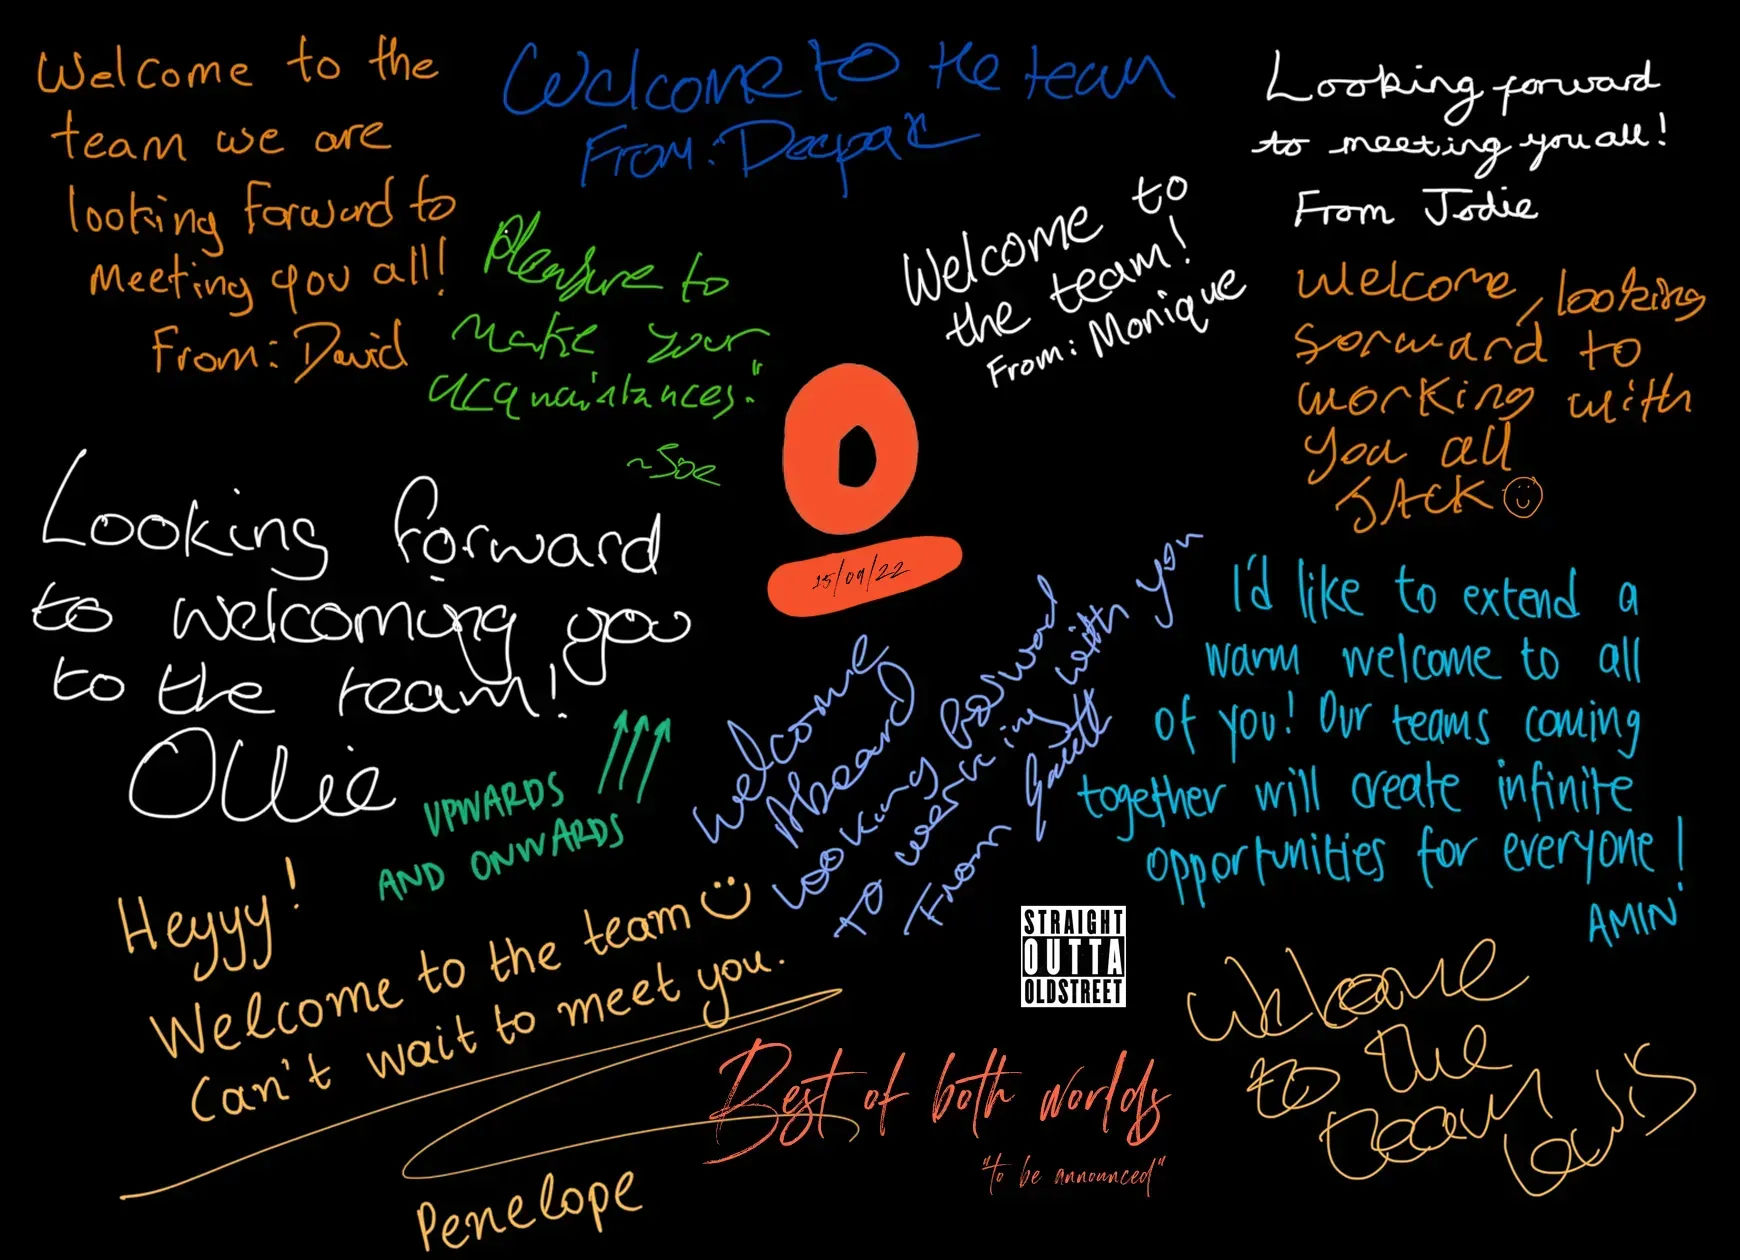 Welcome to the
team we are
looking forward to
meeting you all!
From: David
Welcome to the team
From: Deepak
Looking forward
to meeting you all!
From Jodie
Pleasure to
make your
acquaintances."
~Joe
Welcome to
the team!
From: Monique
Welcome, looking
forward to
working with
you all
JACK
15/09/22
Looking forward
to welcoming you
to the team!
Ollie
UPWARDS
AND ONWARDS
Welcome
Aboard
Looking forward
to working with you
From
I'd like to extend a
warm welcome to all
of you! Our teams coming
together will create infinite
opportunities for everyone!
AMIN
Heyyy!
Welcome to the team
Can't wait to meet you.
Penelope
STRAIGHT
OUTTA
OLDSTREET
Best of both worlds
"to be announced"
Welcome
to the
team
Lewis